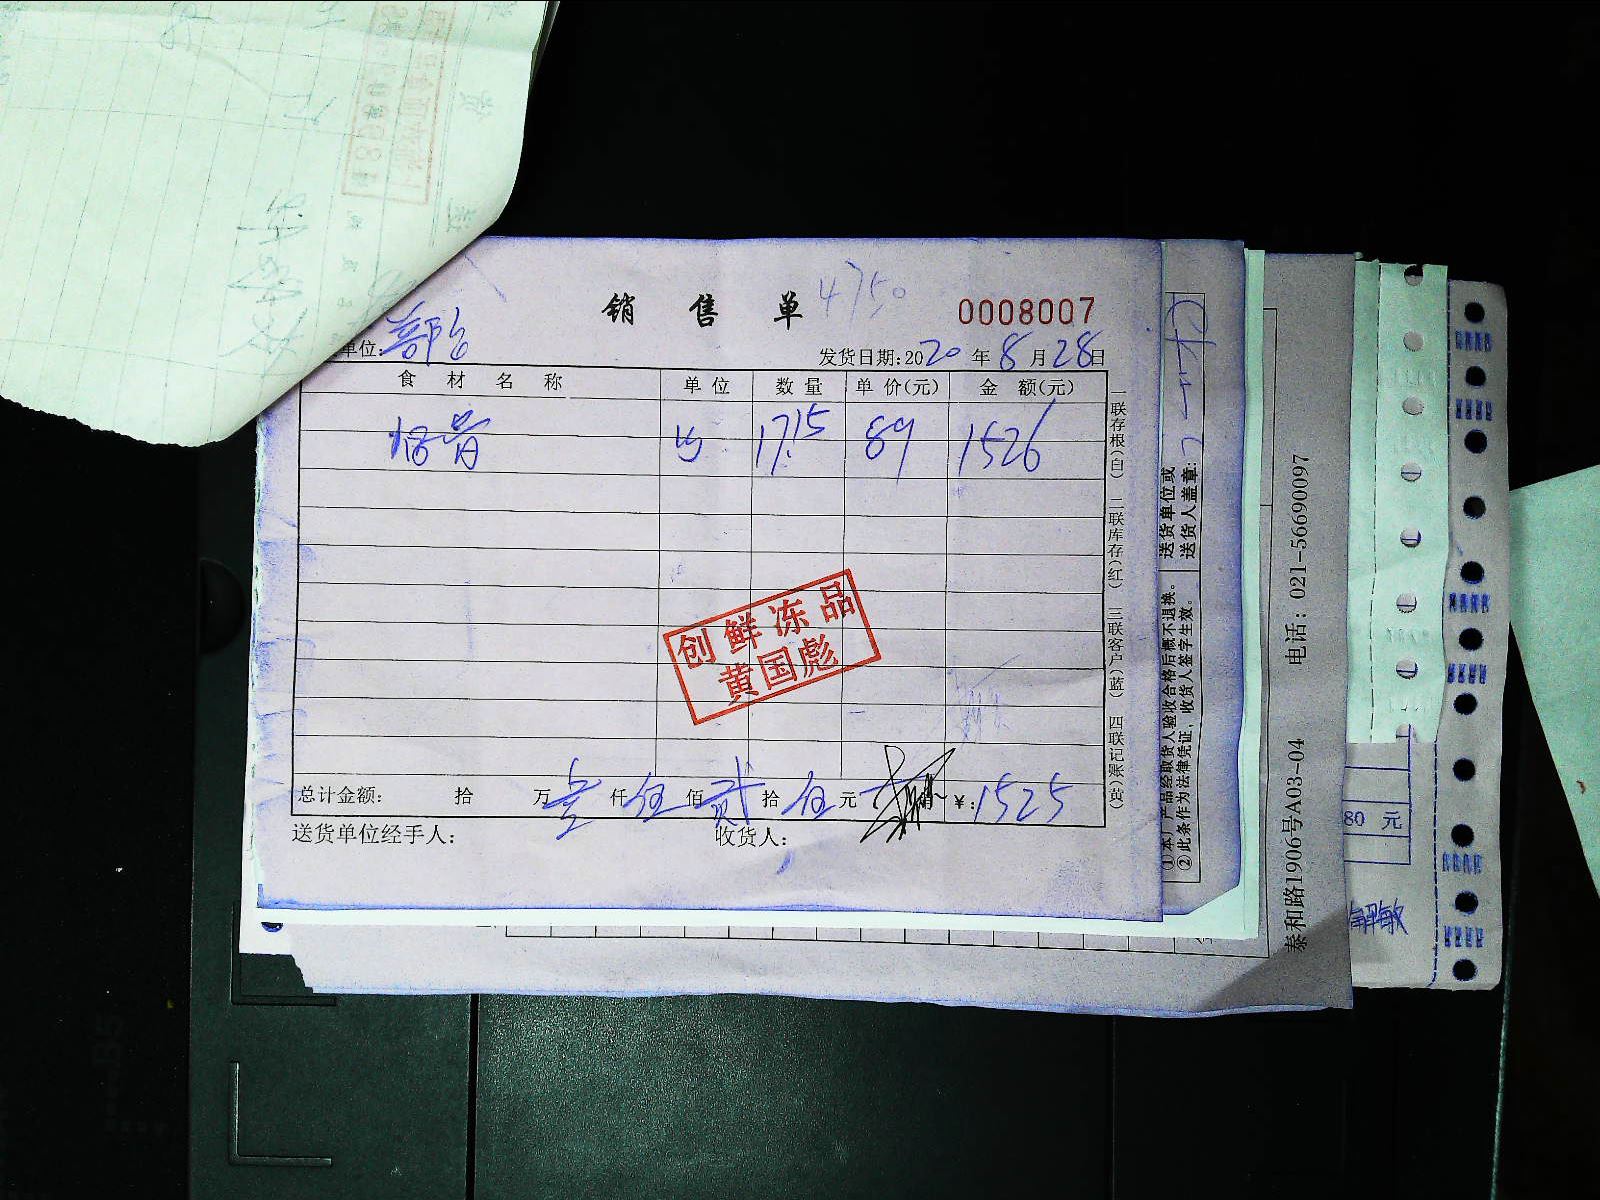 销售单 4750 0008007
单位: 发货日期:2020年8月28日
食材名称 单位 数量 单价(元) 金额(元)
17.15 89 1526
一联存根(白) 二联库存(红) 三联客户(蓝) 四联记账(黄)
创鲜冻品
黄国彪
总计金额: 拾 万 壹 仟 伍 佰 贰 拾 伍 元 角 ¥:1525
送货单位经手人: 收货人:
送货单位或
送货人盖章:
①本厂产品经取货人验收合格后概不退换。
②此条作为法律凭证,收货人签字生效。
泰和路1906号A03-04 电话:021-56690097
80 元